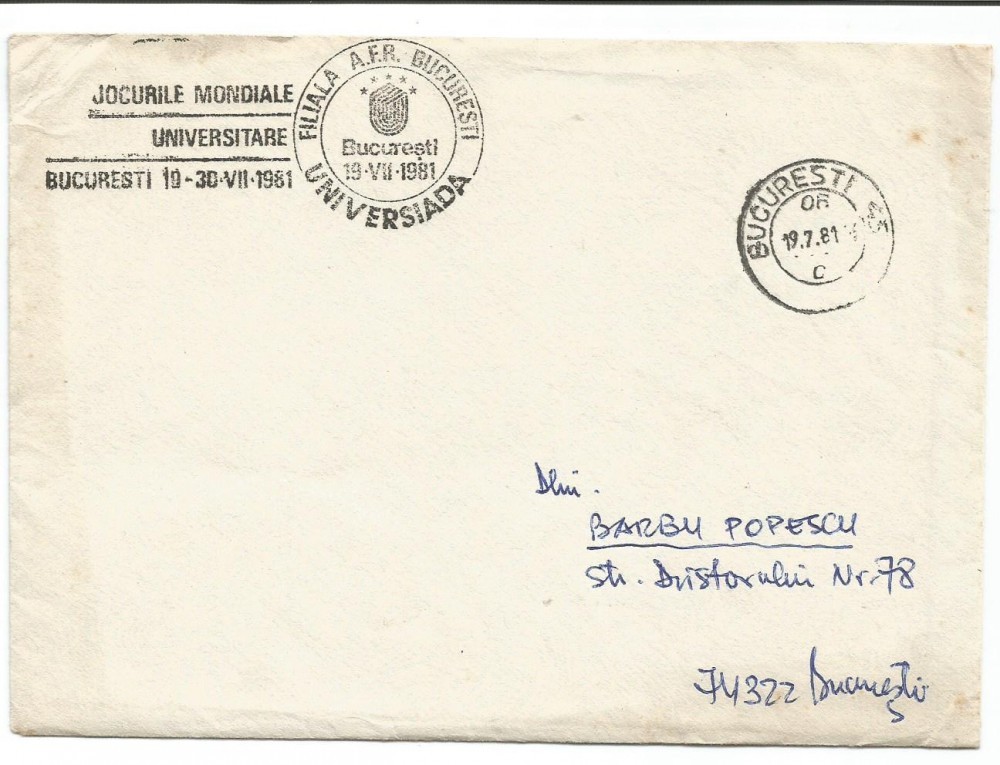 JOCURILE MONDIALE
UNIVERSITARE
BUCURESTI 19-30·VII·1981
FILIALA A.F.R. BUCURESTI
București
19·VII·1981
UNIVERSIADA
BUCURESTI 45
OF
19.7.81
C
Dlui.
BARBU POPESCU
Str. Dristorului Nr. 78
74322 București